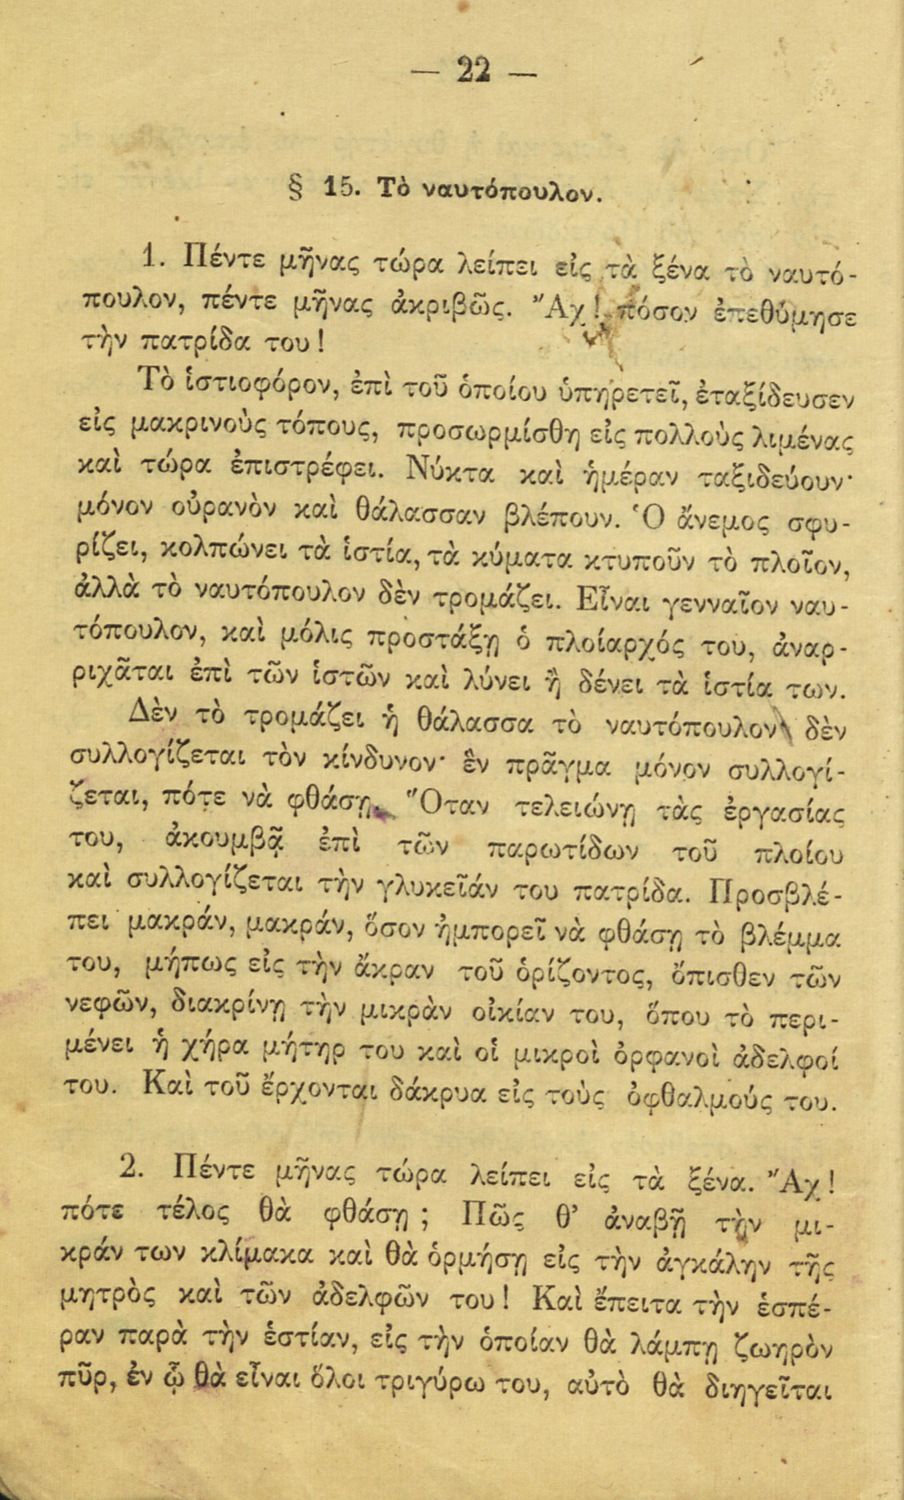 — 22 —
§ 15. Τὸ ναυτόπουλον.
1. Πέντε μῆνας τώρα λείπει εἰς τὰ ξένα τὸ ναυτό-
πουλον, πέντε μῆνας ἀκριβῶς. Ἂχ! πόσον ἐπεθύμησε
τὴν πατρίδα του!
Τὸ ἱστιοφόρον, ἐπὶ τοῦ ὁποίου ὑπηρετεῖ, ἐταξίδευσεν
εἰς μακρινοὺς τόπους, προσωρμίσθη εἰς πολλοὺς λιμένας
καὶ τώρα ἐπιστρέφει. Νύκτα καὶ ἡμέραν ταξιδεύουν·
μόνον οὐρανὸν καὶ θάλασσαν βλέπουν. Ὁ ἄνεμος σφυ-
ρίζει, κολπώνει τὰ ἱστία, τὰ κύματα κτυποῦν τὸ πλοῖον,
ἀλλὰ τὸ ναυτόπουλον δὲν τρομάζει. Εἶναι γενναῖον ναυ-
τόπουλον, καὶ μόλις προστάξῃ ὁ πλοίαρχός του, ἀναρ-
ριχᾶται ἐπὶ τῶν ἱστῶν καὶ λύνει ἢ δένει τὰ ἱστία των.
Δὲν τὸ τρομάζει ἡ θάλασσα τὸ ναυτόπουλον· δὲν
συλλογίζεται τὸν κίνδυνον· ἓν πρᾶγμα μόνον συλλογί-
ζεται, πότε νὰ φθάσῃ. Ὅταν τελειώνῃ τὰς ἐργασίας
του, ἀκουμβᾷ ἐπὶ τῶν παρωτίδων τοῦ πλοίου
καὶ συλλογίζεται τὴν γλυκεῖάν του πατρίδα. Προσβλέ-
πει μακράν, μακράν, ὅσον ἠμπορεῖ νὰ φθάσῃ τὸ βλέμμα
του, μήπως εἰς τὴν ἄκραν τοῦ ὁρίζοντος, ὄπισθεν τῶν
νεφῶν, διακρίνῃ τὴν μικρὰν οἰκίαν του, ὅπου τὸ περι-
μένει ἡ χήρα μήτηρ του καὶ οἱ μικροὶ ὀρφανοὶ ἀδελφοί
του. Καὶ τοῦ ἔρχονται δάκρυα εἰς τοὺς ὀφθαλμούς του.
2. Πέντε μῆνας τώρα λείπει εἰς τὰ ξένα. Ἂχ!
πότε τέλος θὰ φθάσῃ; Πῶς θ' ἀναβῇ τὴν μι-
κράν των κλίμακα καὶ θὰ ὁρμήσῃ εἰς τὴν ἀγκάλην τῆς
μητρὸς καὶ τῶν ἀδελφῶν του! Καὶ ἔπειτα τὴν ἑσπέ-
ραν παρὰ τὴν ἑστίαν, εἰς τὴν ὁποίαν θὰ λάμπῃ ζωηρὸν
πῦρ, ἐν ᾧ θὰ εἶναι ὅλοι τριγύρω του, αὐτὸ θὰ διηγεῖται